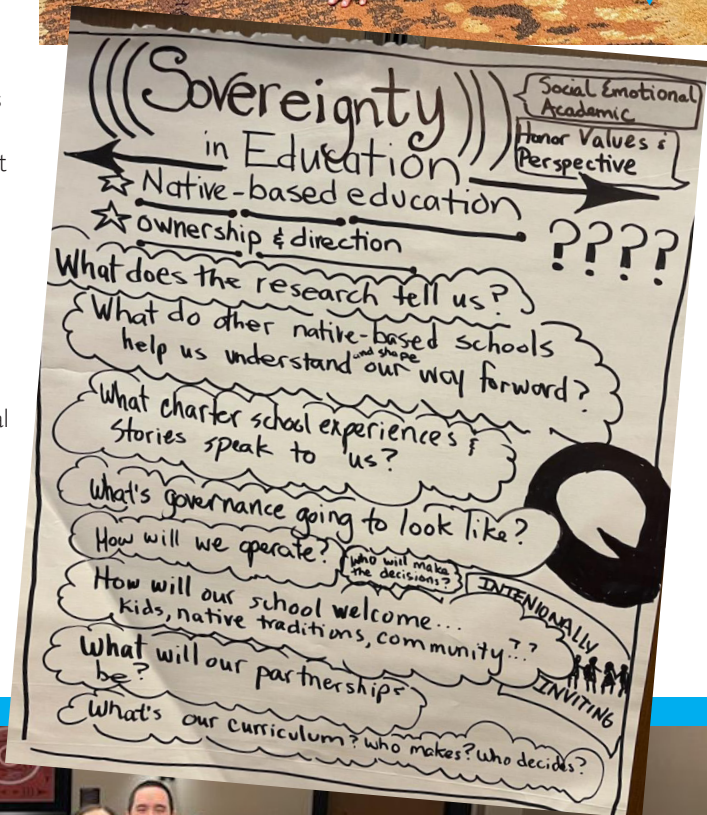 Sovereignty
in Education
Social Emotional
Academic
Honor Values &
Perspective
Native-based education
ownership & direction
????
What does the research tell us?
What do other native-based schools
help us understand and shape our way forward?
What charter school experiences &
Stories speak to us?
What's governance going to look like?
How will we operate?
who will make
the decisions?
How will our school welcome...
kids, native traditions, community...??
INTENIONALLY
INVITING
What will our partnerships
be?
What's our curriculum? who makes? Who decides?